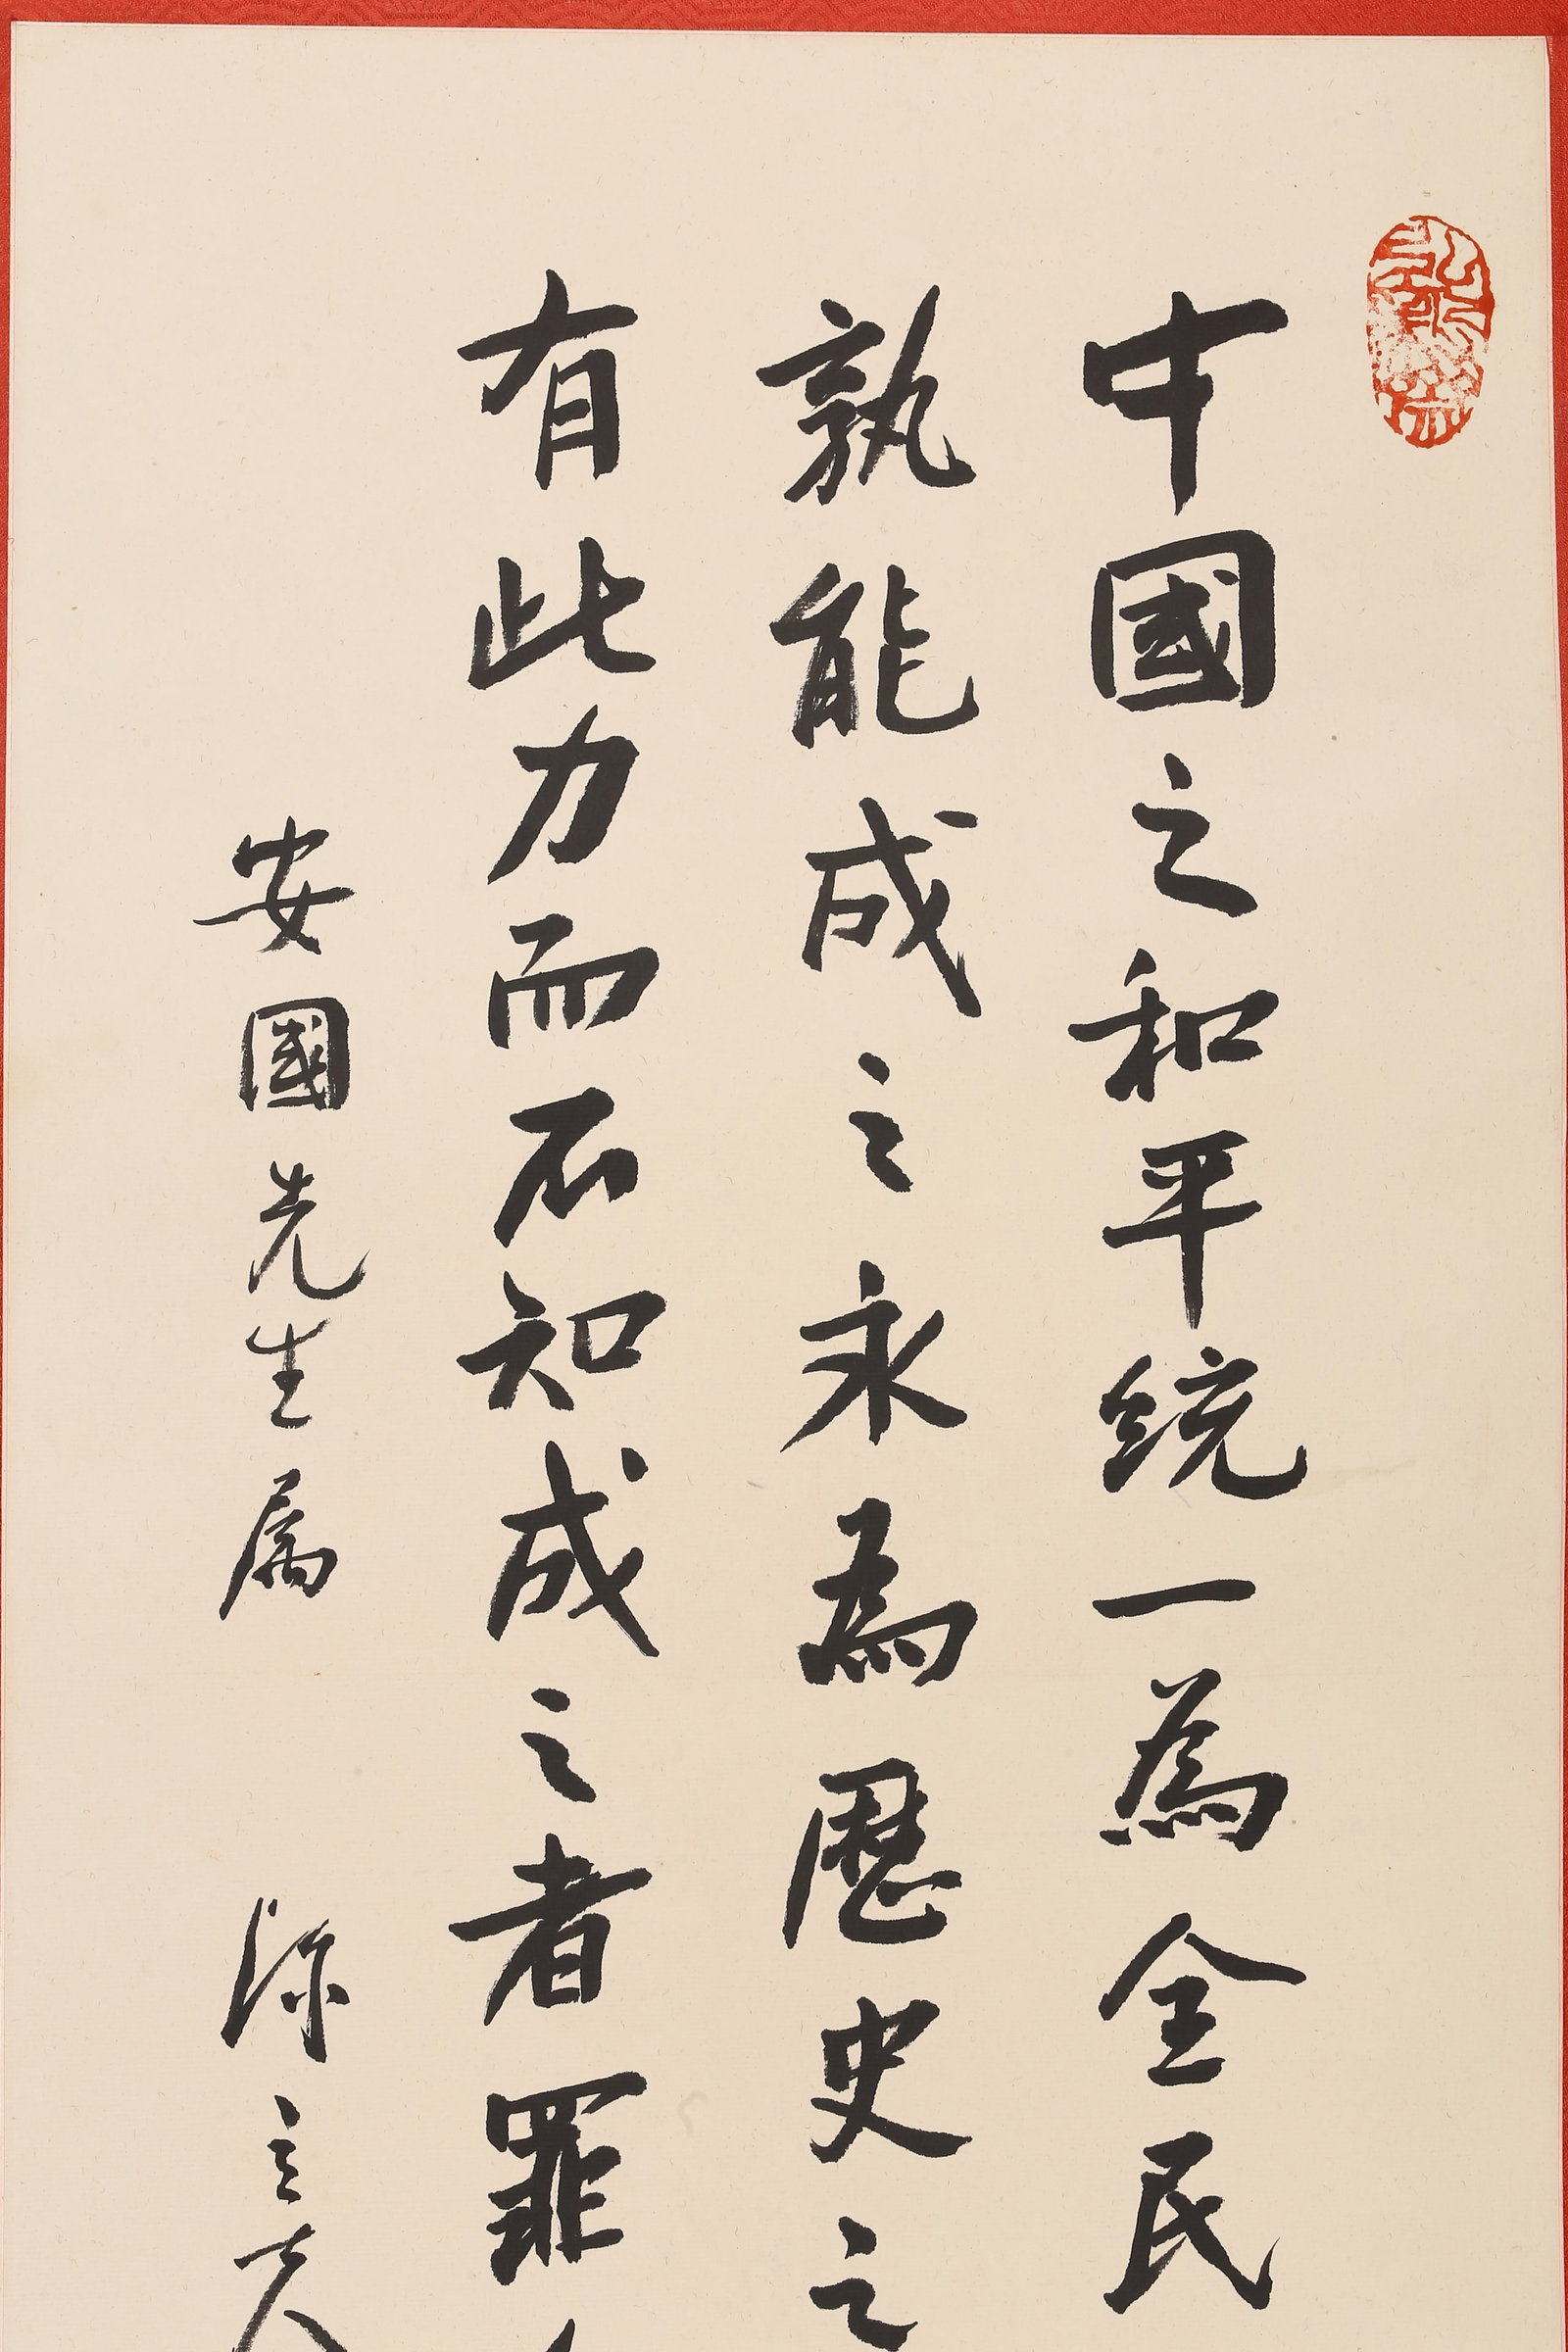 中國之和平統一為全民
孰能成之永為歷史之
有此力而不知成之者罪
安國先生属